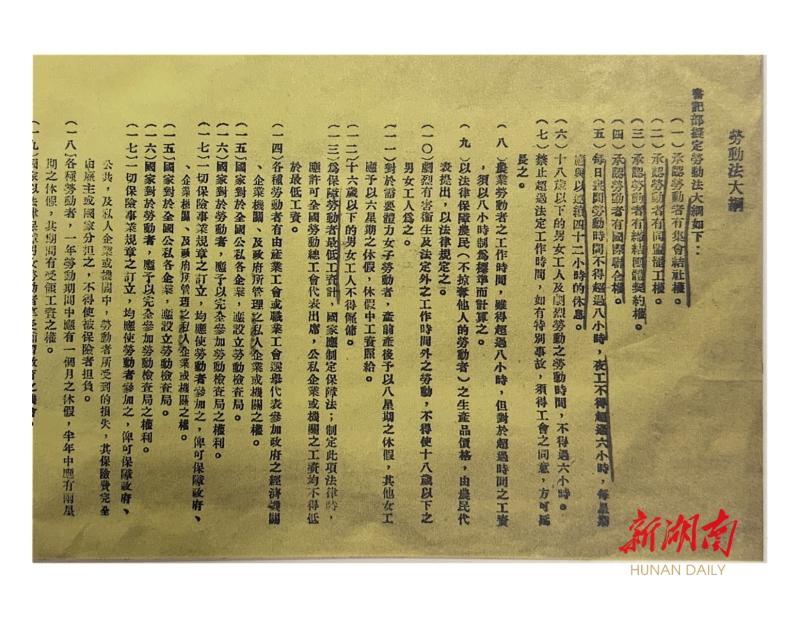 勞動法大綱
書記部擬定勞動法大綱如下：
（一）承認勞動者有集會結社權。
（二）承認勞動者有同盟罷工權。
（三）承認勞動者有締結團體契約權。
（四）承認勞動者有國際聯合權。
（五）每日晝間勞動時間不得超過八小時，夜工不得超過六小時，每星期
應與以連續四十二小時的休息。
（六）十八歲以下的男女工人及劇烈勞動之勞動時間，不得過六小時。
（七）禁止超過法定工作時間，如有特別事故，須得工會之同意，方可延
長之。
（八）農業勞動者之工作時間，雖得超過八小時，但對於超過時間之工資
，須以八小時制爲標準而計算之。
（九）以法律保障農民（不掠奪他人的勞動者）之生產品價格，由農民代
表提出，以法律規定之。
（一〇）劇烈有害衛生及法定外之工作時間外之勞動，不得使十八歲以下之
男女工人爲之。
（一一）對於需要體力女子勞動者，產前產後予以八星期之休假，其他女工
應予以六星期之休假，休假中工資照給。
（一二）十六歲以下的男女工人不得僱傭。
（一三）爲保障勞動者最低工資計，國家應制定保障法；制定此項法律時，
應許可全國勞動總工會代表出席，公私企業或機關之工資均不得低
於最低工資。
（一四）各種勞動者有由產業工會或職業工會選舉代表參加政府之經濟機關
、企業機關、及政府所管理之私人企業或機關之權。
（一五）國家對於全國公私各企業，應設立勞動檢查局。
（一六）國家對於勞動者，應予以完全參加勞動檢查局之權利。
（一七）一切保險事業規章之訂立，均應使勞動者參加之，俾可保障政府、
、企業機關、及政府所管理之私人企業或機關之權。
（一五）國家對於全國公私各企業，應設立勞動檢查局。
（一六）國家對於勞動者，應予以完全參加勞動檢查局之權利。
（一七）一切保險事業規章之訂立，均應使勞動者參加之，俾可保障政府、
公共，及私人企業或機關中，勞動者所受到的損失，其保險費完全
由雇主或國家分担之，不得使被保險者担負。
（一八）各種勞動者，一年勞動期間中應有一個月之休假，半年中應有兩星
期之休假，其期間有受領工資之權。
（一九）國家以法律保障男女勞動者
新湖南
HUNAN DAILY